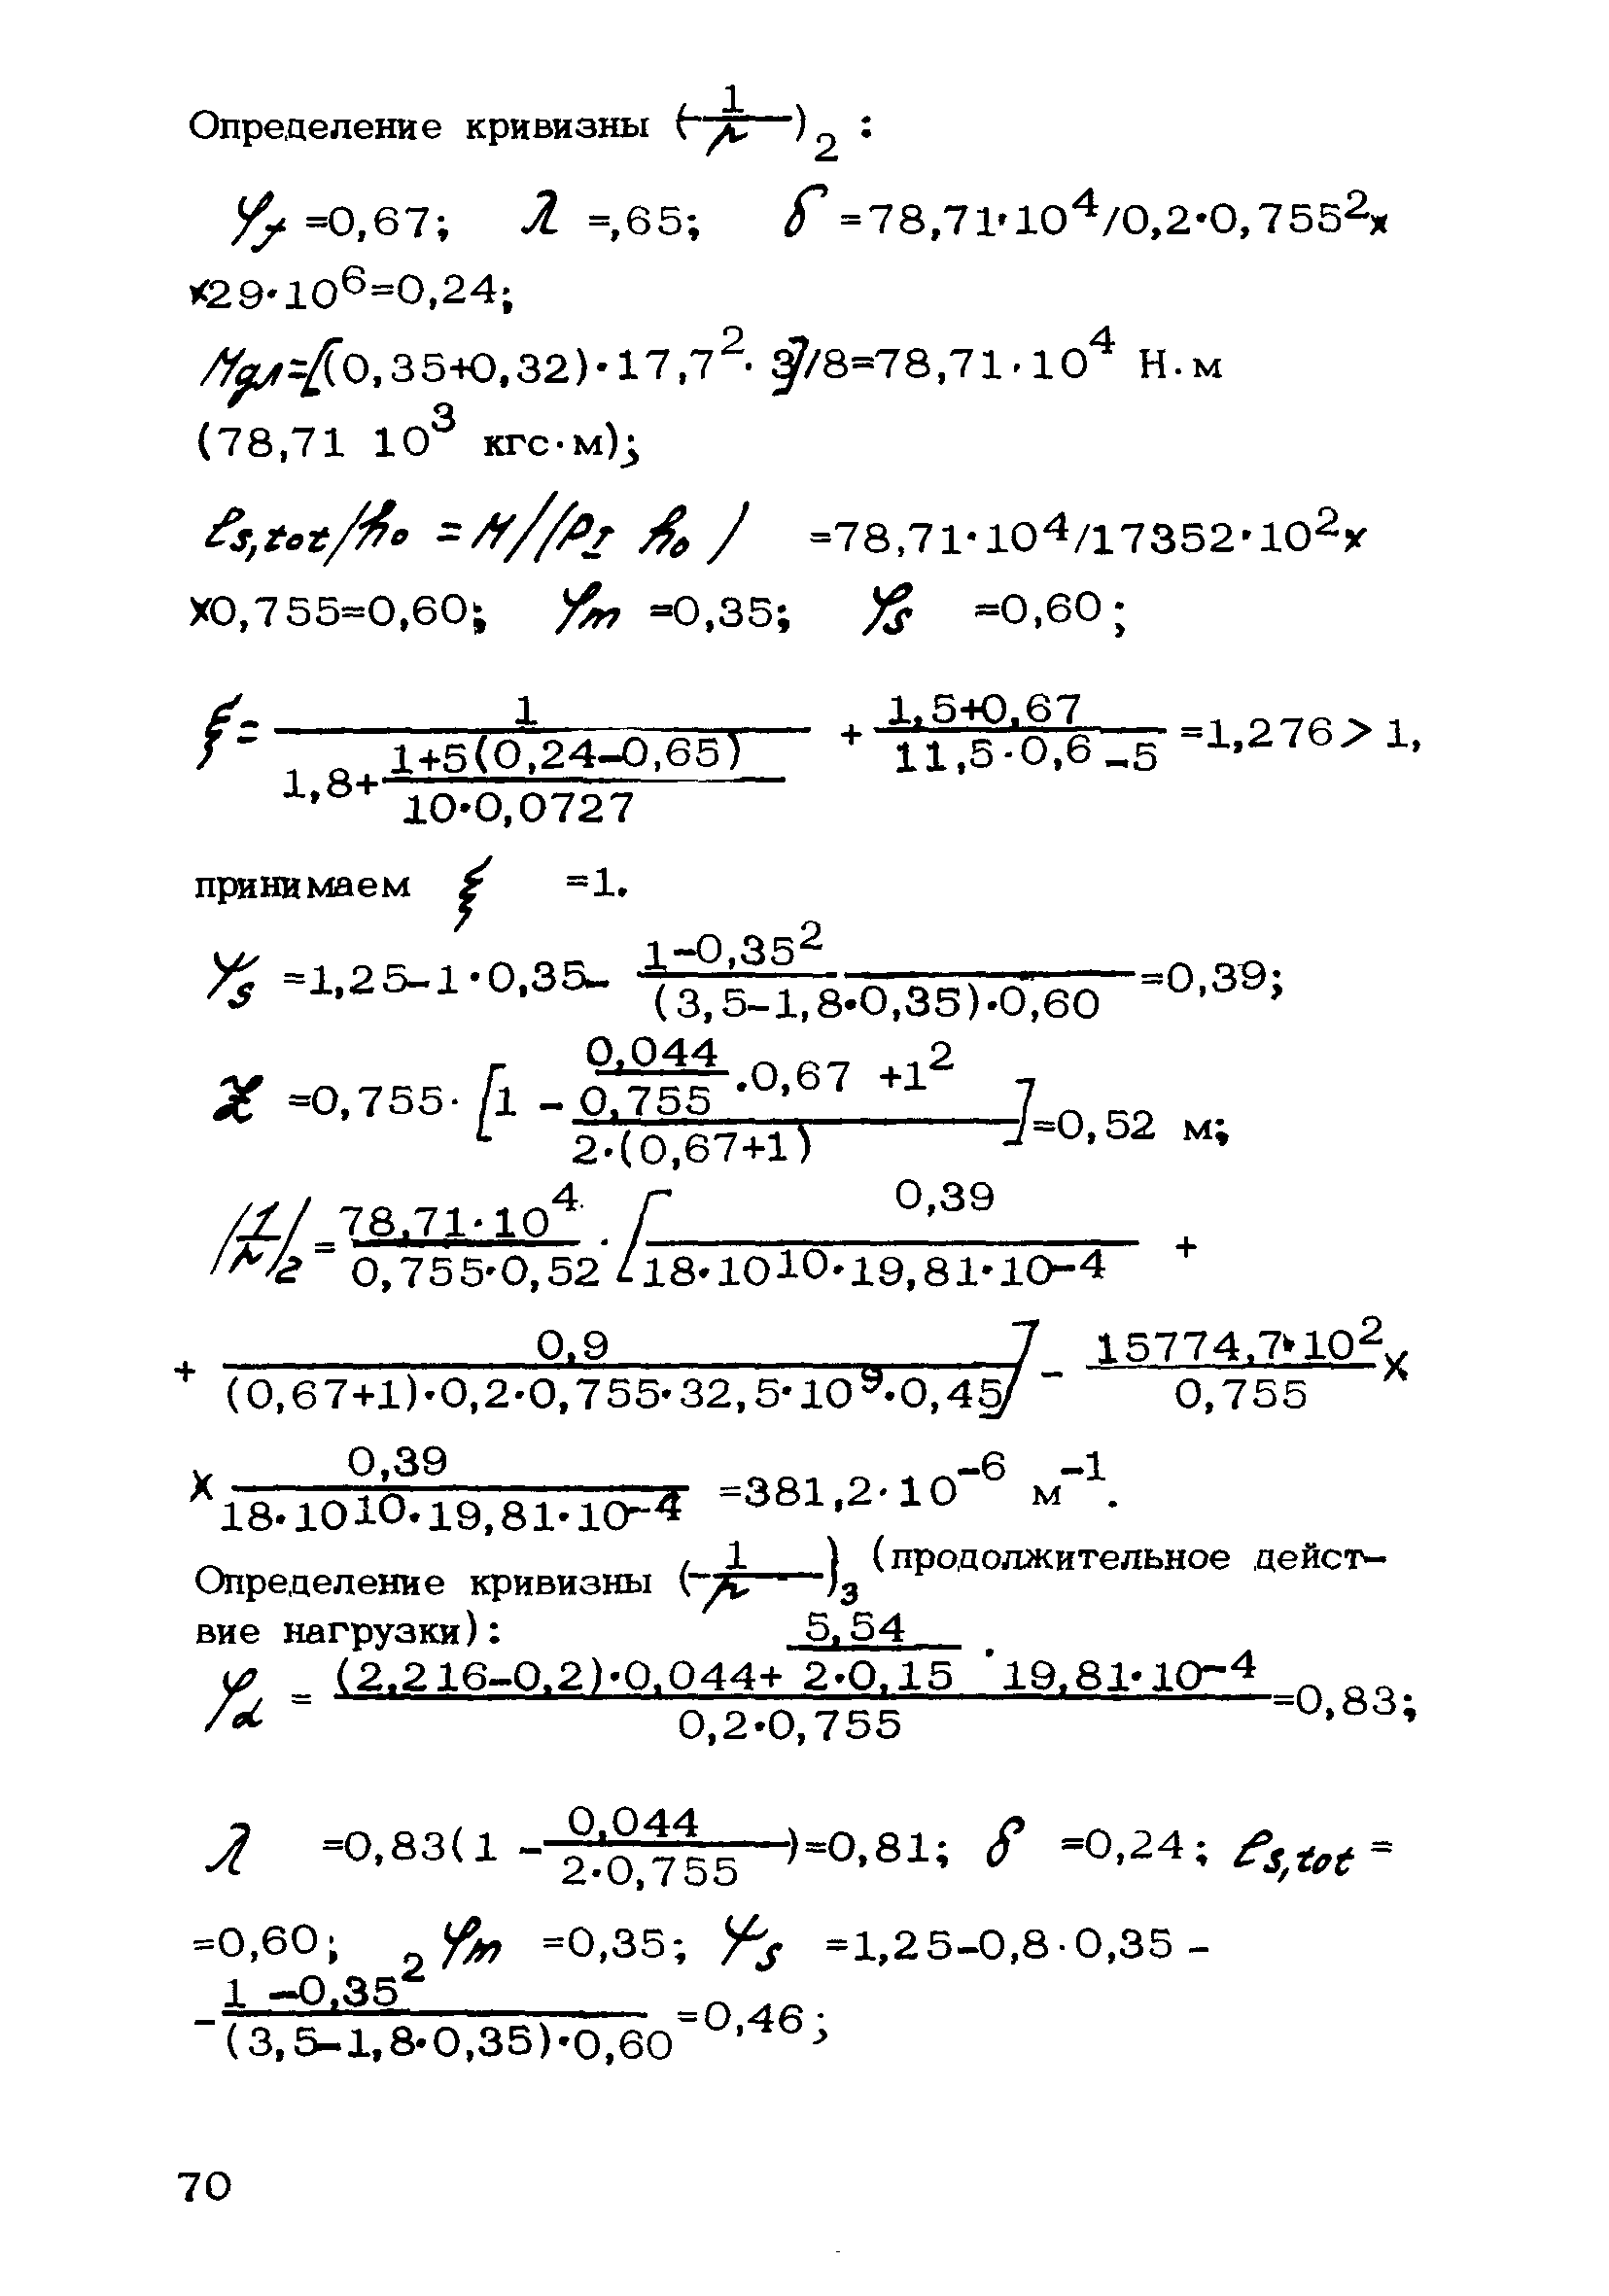 Определение кривизны (1/r)₂ :
φ_f =0,67; λ =,65; δ =78,71·10⁴/0,2·0,755²×
×29·10⁶=0,24;
M_дл=[(0,35+0,32)·17,7²· 3]/8=78,71·10⁴ Н·м
(78,71 10³ кгс·м);
e_s,tot/h₀ = M/(P_I h₀) =78,71·10⁴/17352·10²×
×0,755=0,60; φ_m =0,35; φ_s =0,60;
ξ= 1/(1,8+ (1+5(0,24-0,65))/(10·0,0727)) + (1,5+0,67)/(11,5·0,6-5) =1,276> 1,
принимаем ξ =1.
ψ_s =1,25-1·0,35- (1-0,35²)/((3,5-1,8·0,35)·0,60) =0,39;
z =0,755· [1 - (0,044/0,755 ·0,67 +1²)/(2·(0,67+1))]=0,52 м;
(1/r)₂= (78,71·10⁴)/(0,755·0,52) · [0,39/(18·10¹⁰·19,81·10⁻⁴) +
+ 0,9/((0,67+1)·0,2·0,755·32,5·10⁹·0,45)] - (15774,7·10²)/(0,755) ×
× 0,39/(18·10¹⁰·19,81·10⁻⁴) =381,2·10⁻⁶ м⁻¹.
Определение кривизны (1/r)₃ (продолжительное дейст-
вие нагрузки):
φ_α = ((2,216-0,2)·0,044+ 5,54/(2·0,15) · 19,81·10⁻⁴)/(0,2·0,755) =0,83;
λ =0,83(1 - 0,044/(2·0,755))=0,81; δ =0,24; e_s,tot =
=0,60; φ_m =0,35; ψ_s =1,25-0,8·0,35 -
- (1 -0,35²)/((3,5-1,8·0,35)·0,60) =0,46;
70